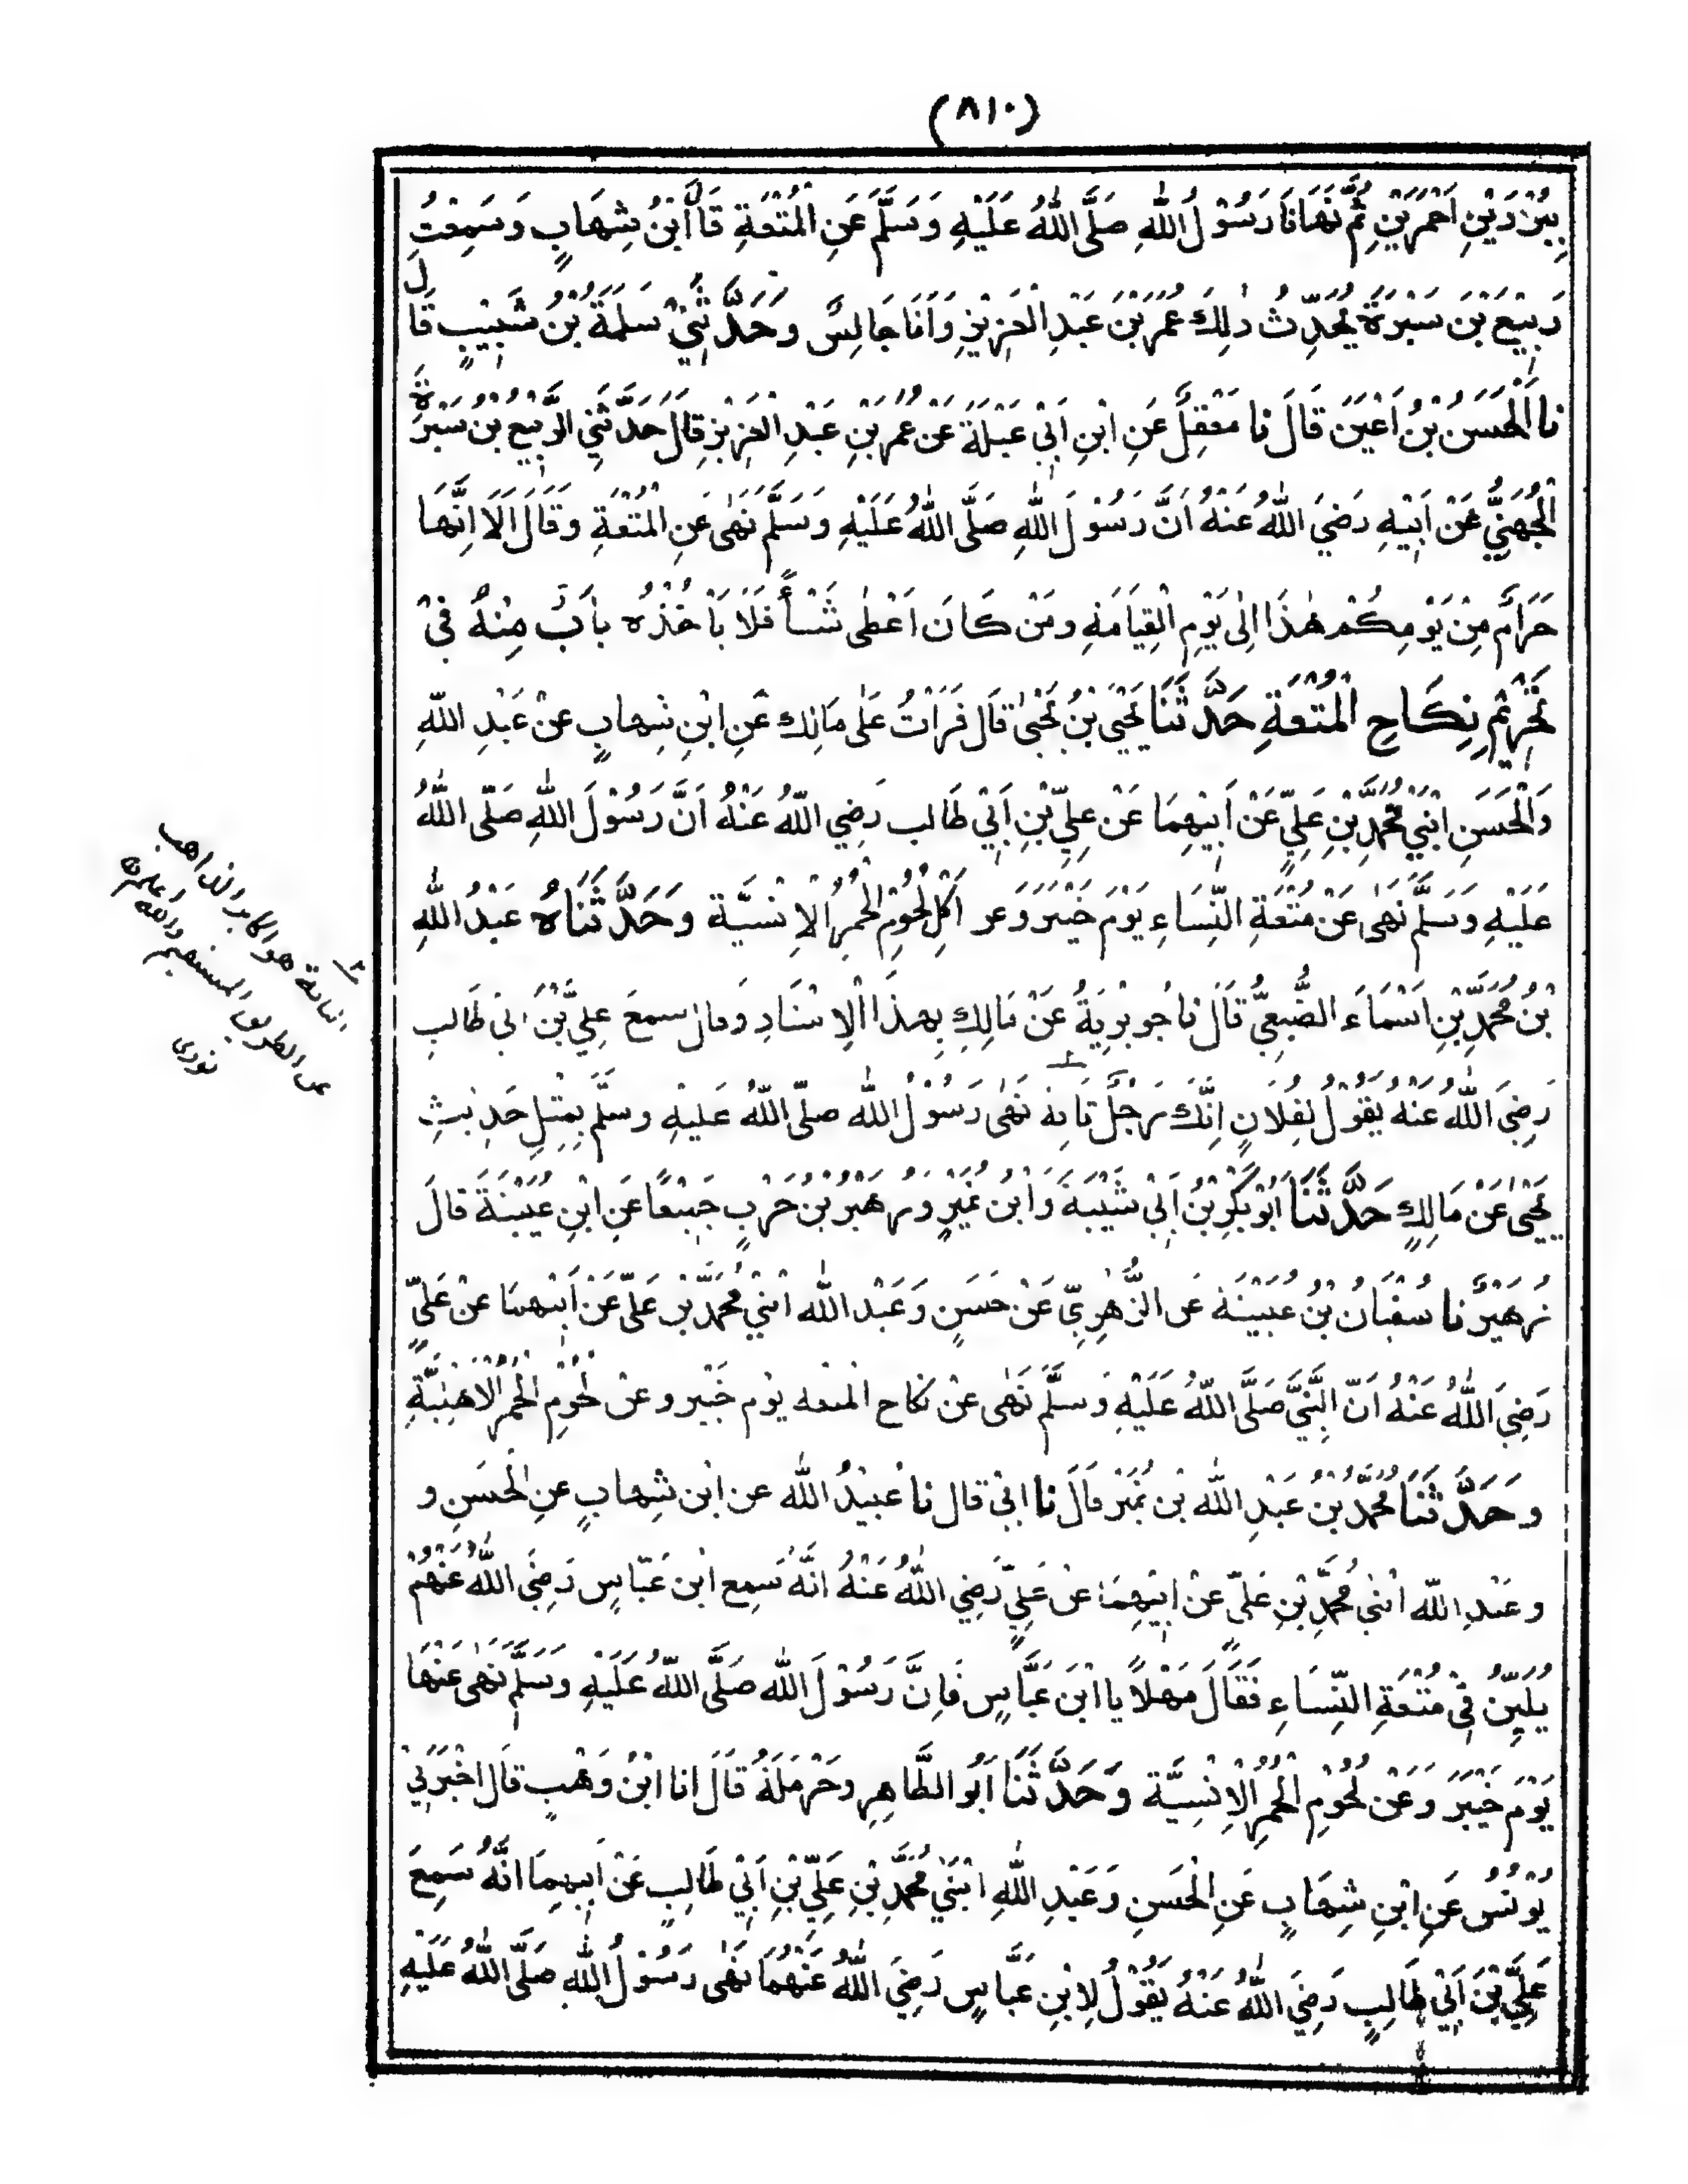 (٨١٠)
بِبُرْدَيْنِ اَحْمَرَيْنِ ثُمَّ نَهَانَا رَسُوْلُ اللّٰهِ صَلَّى اللّٰهُ عَلَيْهِ وَسَلَّمَ عَنِ الْمُتْعَةِ قَالَ ابْنُ شِهَابٍ وَسَمِعْتُ
رَبِيْعَ بْنَ سَبْرَةَ يُحَدِّثُ ذٰلِكَ عُمَرَ بْنَ عَبْدِ الْعَزِيْزِ وَاَنَا جَالِسٌ وَحَدَّثَنِيْ سَلَمَةُ بْنُ شَبِيْبٍ قَالَ
نا الْحَسَنُ بْنُ اَعْيَنَ قَالَ نا مَعْقِلٌ عَنِ ابْنِ اَبِيْ عَبْلَةَ عَنْ عُمَرَ بْنِ عَبْدِ الْعَزِيْزِ قَالَ حَدَّثَنِي الرَّبِيْعُ بْنُ سَبْرَةَ
الْجُهَنِيُّ عَنْ اَبِيْهِ رَضِيَ اللّٰهُ عَنْهُ اَنَّ رَسُوْلَ اللّٰهِ صَلَّى اللّٰهُ عَلَيْهِ وَسَلَّمَ نَهٰى عَنِ الْمُتْعَةِ وَقَالَ اَلَا اِنَّهَا
حَرَامٌ مِنْ يَوْمِكُمْ هٰذَا اِلٰى يَوْمِ الْقِيَامَةِ وَمَنْ كَانَ اَعْطٰى شَيْـأً فَلَا يَاْخُذْهُ بَابٌ مِنْهُ فِيْ
تَحْرِيْمِ نِكَاحِ الْمُتْعَةِ حَدَّثَنَا يَحْيَى بْنُ يَحْيٰى قَالَ قَرَأْتُ عَلٰى مَالِكٍ عَنِ ابْنِ شِهَابٍ عَنْ عَبْدِ اللّٰهِ
وَالْحَسَنِ ابْنَيْ مُحَمَّدِ بْنِ عَلِيٍّ عَنْ اَبِيْهِمَا عَنْ عَلِيِّ بْنِ اَبِيْ طَالِب رَضِي اللّٰهُ عَنْهُ اَنَّ رَسُوْلَ اللّٰهِ صَلَّى اللّٰهُ
عَلَيْهِ وَسَلَّمَ نَهٰى عَنْ مُتْعَةِ النِّسَاءِ يَوْمَ خَيْبَرَ وَعَن اَكْلِ لُحُوْمِ الْحُمُرِ الْاِنْسِيَّة وَحَدَّثَنَاهُ عَبْدُ اللّٰهِ
بْنُ مُحَمَّدِ بْنِ اَسْمَاءَ الضُّبَعِيُّ قَالَ نا جُوَيْرِيَةُ عَنْ مَالِكٍ بِهٰذَا الْاِسْنَادِ وَقَالَ سَمِعَ عَلِيَّ بْنَ اَبِيْ طَالِبٍ
رَضِيَ اللّٰهُ عَنْهُ يَقُوْلُ لِفُلَانٍ اِنَّكَ رَجُلٌ تَائِهٌ نَهٰى رَسُوْلُ اللّٰهِ صلّى اللّٰهُ عَلَيْهِ وسلَّمَ بِمِثْلِ حَدِيْثِ
يَحْيٰى عَنْ مَالِكٍ حَدَّثَنَا اَبُوْ بَكْرِ بْنُ اَبِيْ شَيْبَةَ وَابْنُ نُمَيْرٍ وَزُهَيْرُ بْنُ حَرْبٍ جَمِيْعًا عَنِ ابْنِ عُيَيْنَةَ قَالَ
زُهَيْرٌ نا سُفْيَانُ بْنُ عُيَيْنَةَ عَنِ الزُّهْرِيِّ عَنْ حَسَنٍ وَعَبْدِ اللّٰه ابْنَيْ مُحَمَّدِ بْنِ عَلِيٍّ عَنْ اَبِيْهِمَا عَنْ عَلِيٍّ
رَضِيَ اللّٰهُ عَنْهُ اَنَّ النَّبِيَّ صَلَّى اللّٰهُ عَلَيْهِ وَسَلَّمَ نَهٰى عَنْ نِكَاحِ الْمُتْعَه يَوْم خَيْبَر وَعَنْ لُحُوْمِ الْحُمُرِ الْاَهْلِيَّةِ
وحَدَّثَنَا مُحَمَّدُ بْنُ عَبْدِ اللّٰه بْنِ نُمَيْر قَالَ نا ابِيْ قَالَ نا عُبَيْدُ اللّٰه عَن ابْن شِهَابٍ عَنِ الْحَسَنِ و
وعَبْدِ اللّٰه ابْنَيْ مُحَمَّدِ بْنِ عَلِيٍّ عَنْ ابِيْهِمَا عَنْ عَلِيٍّ رَضِيَ اللّٰهُ عَنْهُ انَّهُ سَمِعَ ابْنَ عَبَّاسٍ رَضِيَ اللّٰهُ عَنْهُمْ
يُلَيِّنُ فِيْ مُتْعَةِ النِّسَاءِ فَقَالَ مَهْلًا يا ابْنَ عَبَّاسٍ فَاِنَّ رَسُوْلَ اللّٰه صَلَّى اللّٰهُ عَلَيْهِ وَسَلَّمَ نَهٰى عَنْهَا
يَوْمَ خَيْبَرَ وَعَنْ لُحُوْمِ الْحُمُرِ الْاِنْسِيَّة وَحَدَّثَنَا اَبُو الطَّاهِرِ وحَرْمَلَةُ قَالَ انا ابْنُ وَهْبٍ قَالَ اخْبَرَنِيْ
يُوْنُسُ عَنِ ابْنِ شِهَابٍ عَنِ الْحَسَنِ وَعَبْدِ اللّٰهِ ابْنَيْ مُحَمَّدِ بْنِ عَلِيِّ بْنِ اَبِيْ طَالِبٍ عَنْ اَبِيْهِمَا انَّهُ سَمِعَ
عَلِيَّ بْنَ اَبِيْ طَالِبٍ رَضِيَ اللّٰهُ عَنْهُ يَقُوْلُ لِابْنِ عَبَّاسٍ رَضِيَ اللّٰهُ عَنْهُمَا نَهٰى رَسُوْلُ اللّٰهِ صَلَّى اللّٰهُ عَلَيْهِ
التائة هو الحائد الذاهب
عن الطريق المستقيم والله اعلم
نووى